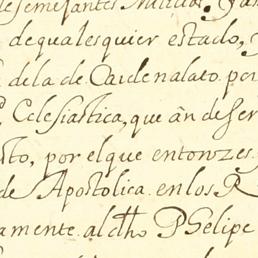 de semejantes
de qualesquier estado, y
de la de Cardenalato. por
Eclesiastica, que ãn de ser
por el que entonzes
de Apostolica. en los R
amente. al dho Phelipe